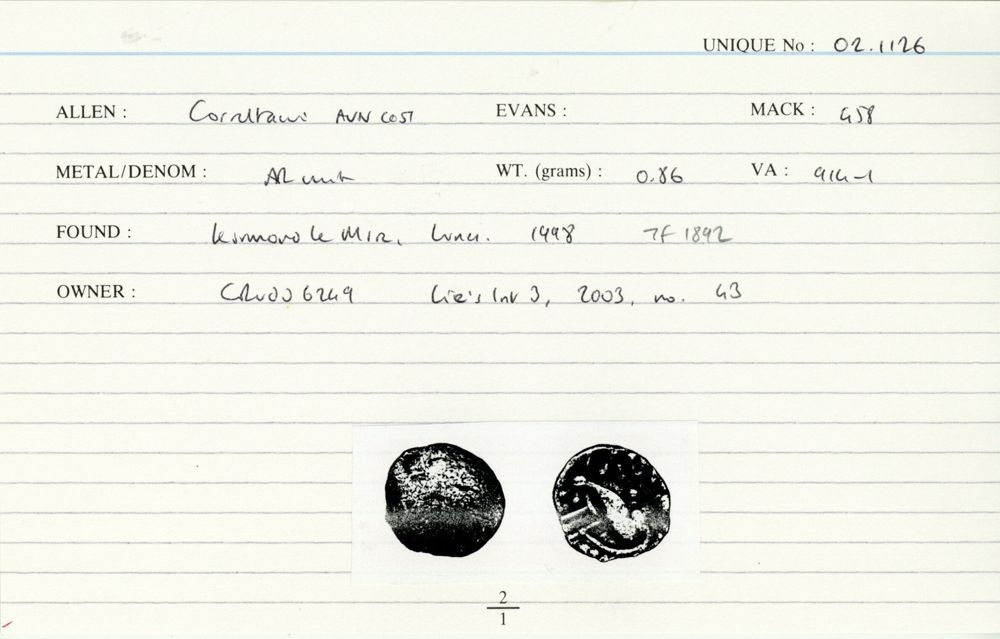 UNIQUE No : 02.1126
ALLEN : Corieltauvi AVN COST EVANS : MACK : 458
METAL/DENOM : AR unit WT. (grams) : 0.86 VA : 914-1
FOUND : Kirmond le Mire, Lincs. 1998 TF 1892
OWNER : CR 6249 Liz's Inv 3, 2003, no. 43
2
1